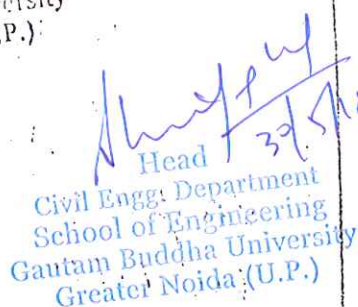 P.)
30/5/
Head
Civil Engg. Department
School of Engineering
Gautam Buddha University
Greater Noida (U.P.)